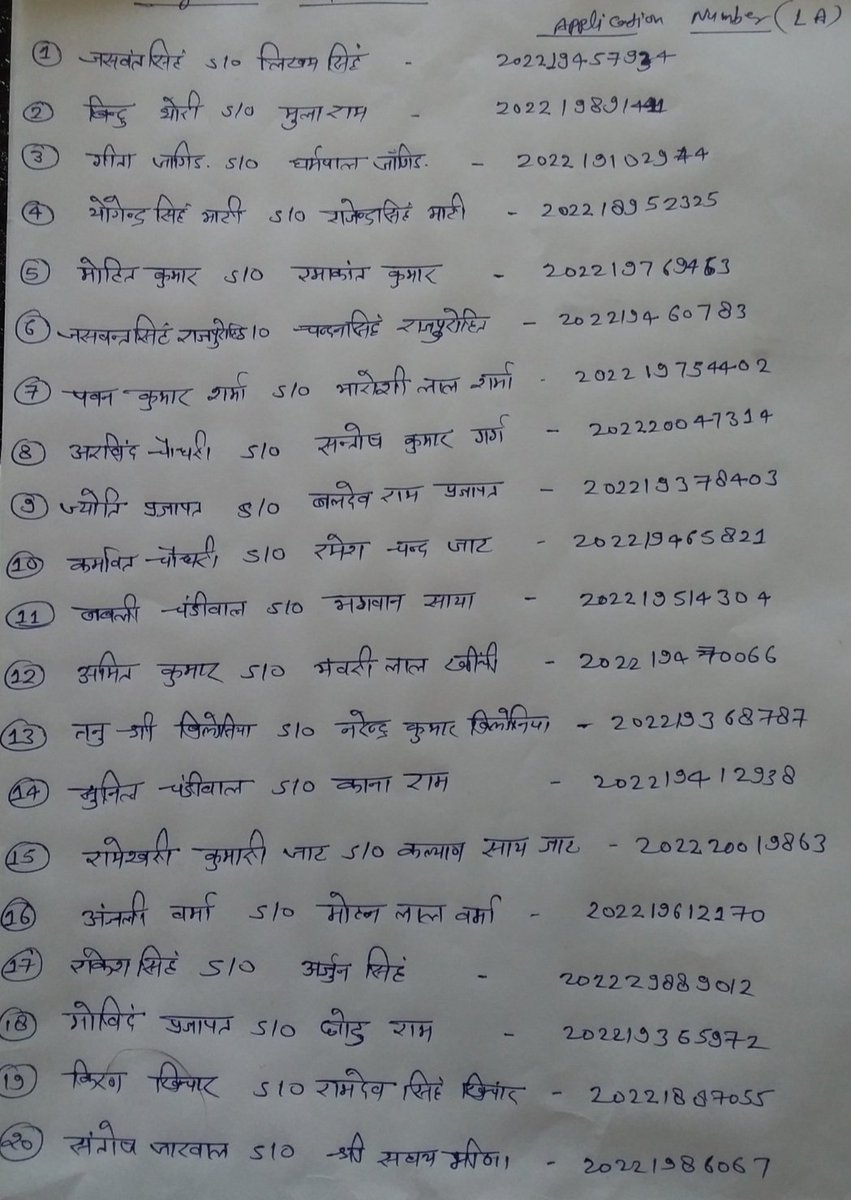 Application Number (LA)
① जसवंत सिहं S/O लिखम सिहं - 202219457934
② बिन्दु थोरी S/O मुला राम - 202219891441
③ गीता जांगिड. S/O धर्मपाल जाँगिड. - 202219102974
④ योगेन्द्र सिहं भाटी S/O राजेन्द्रसिहं भाटी - 202218952325
⑤ मोहित कुमार S/O रमाकांत कुमार - 202219769463
⑥ जसवन्तसिहं राजपुरोहित S/O चन्दनसिहं राजपुरोहित - 202219460783
⑦ पवन कुमार शर्मा S/O भारोशी लाल शर्मा - 202219754402
⑧ अरविंद चौधरी S/O सन्तोष कुमार गर्ग - 202220047314
⑨ ज्योति प्रजापत S/O बलदेव राम प्रजापत - 202219378403
⑩ कर्मावित चौधरी S/O रमेश चन्द जाट - 202219465821
⑪ बबली चंडीवाल S/O भगवान साया - 202219514304
⑫ अमित कुमार S/O भंवरी लाल खींची - 202219470066
⑬ तनु श्री बिलोनिया S/O नरेन्द्र कुमार बिलोनिया - 202219368787
⑭ सुनित चंडीवाल S/O काना राम - 202219412938
⑮ रामेश्वरी कुमारी जाट S/O कल्याण साय जाट - 202220019863
⑯ अंजली वर्मा S/O मोहन लाल वर्मा - 202219612170
⑰ राकेश सिहं S/O अर्जुन सिहं - 202229889012
⑱ गोविदं प्रजापत S/O छोटु राम - 202219365972
⑲ किरण खिचार S/O रामदेव सिहं खिचार - 20221887055
⑳ संतोष जारवाल S/O श्री सहाय मीणा - 20221986067